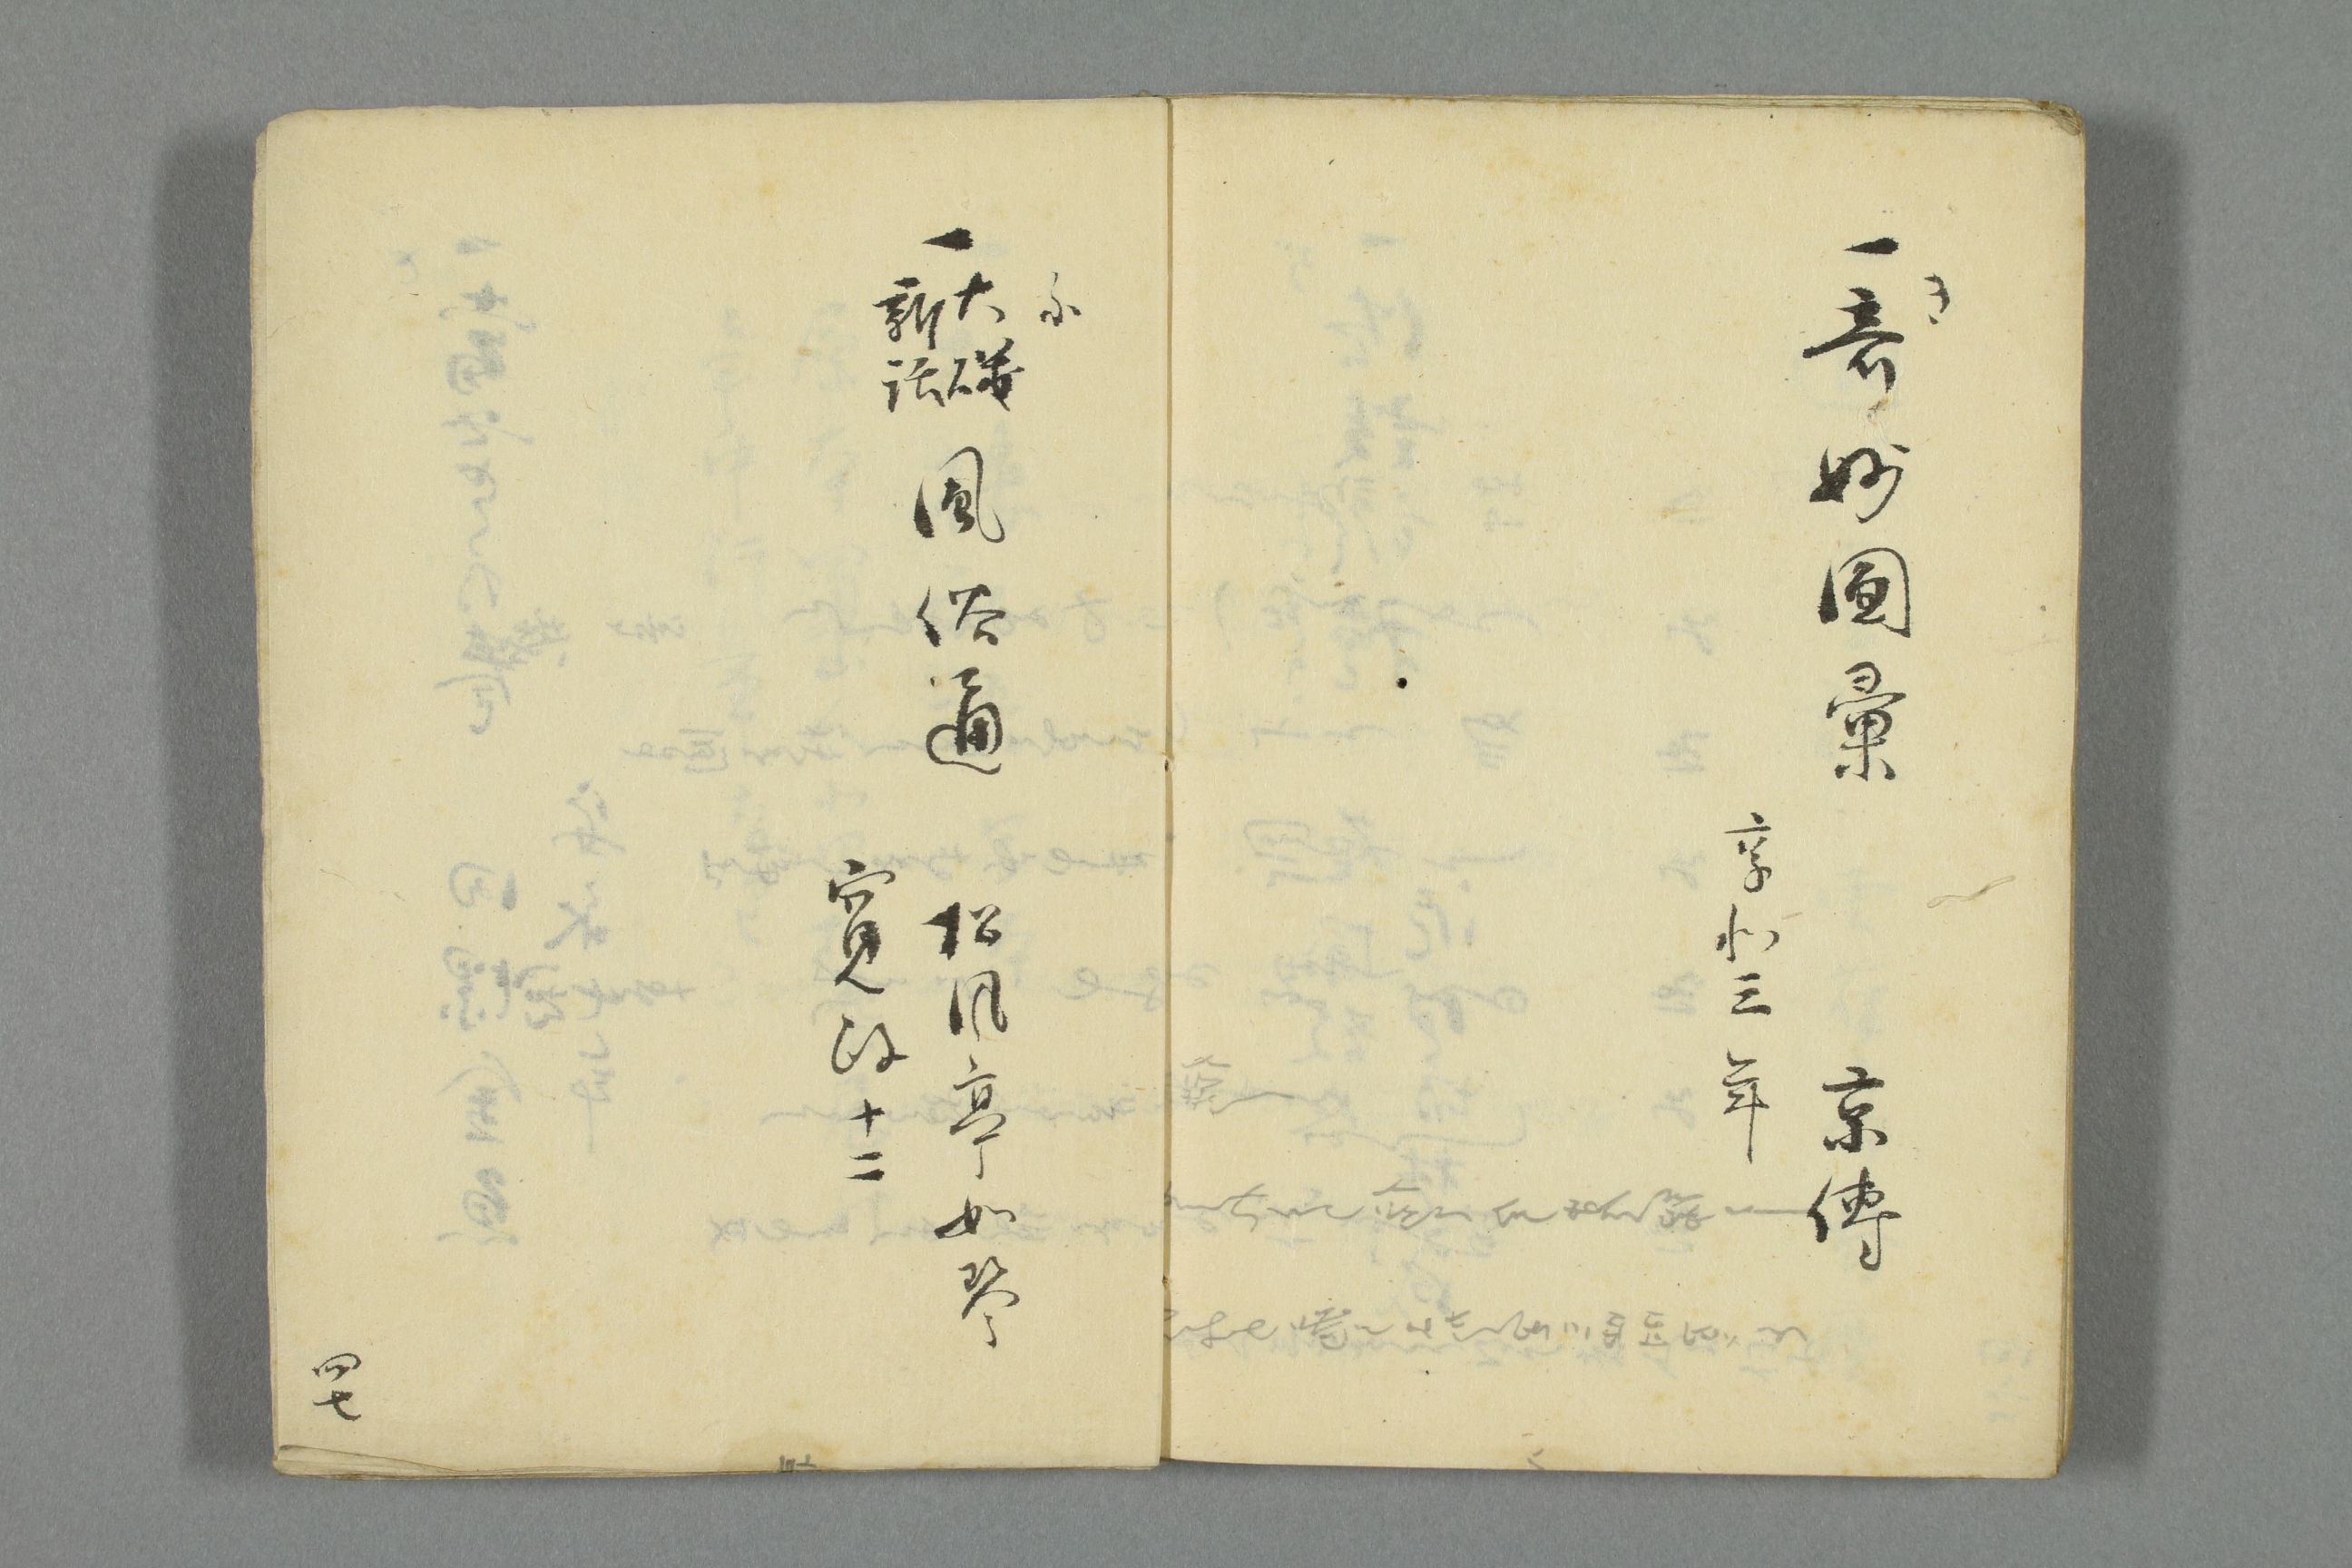 一奇妙圖彙 京傳
享和三年
一大磯新話風俗通 松風亭如琴
寛政十二
四七